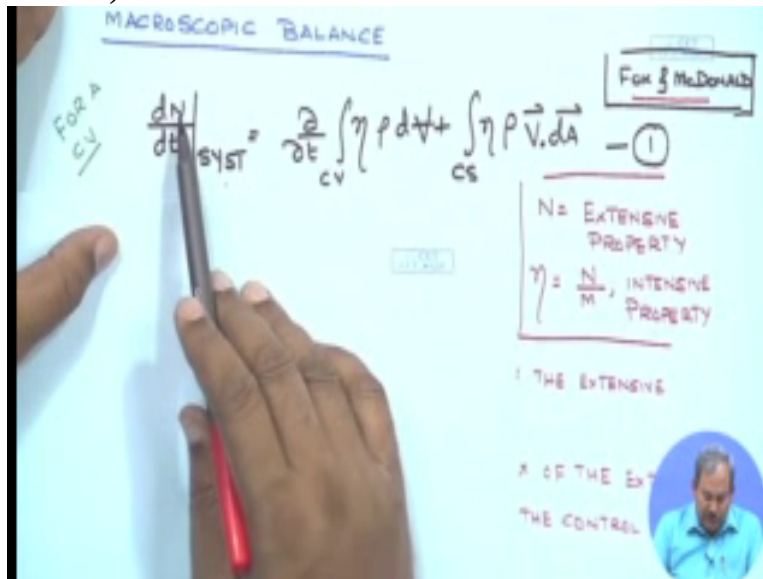 MACROSCOPIC BALANCE
FOX & McDONALD
FOR A
CV
dN/dt|SYST = ∂/∂t ∫CV η ρ d∀ + ∫CS η ρ V⃗. dA⃗ — ①
N = EXTENSIVE
PROPERTY
η = N/M, INTENSIVE
PROPERTY
: THE EXTENSIVE
OF THE EXT
THE CONTROL